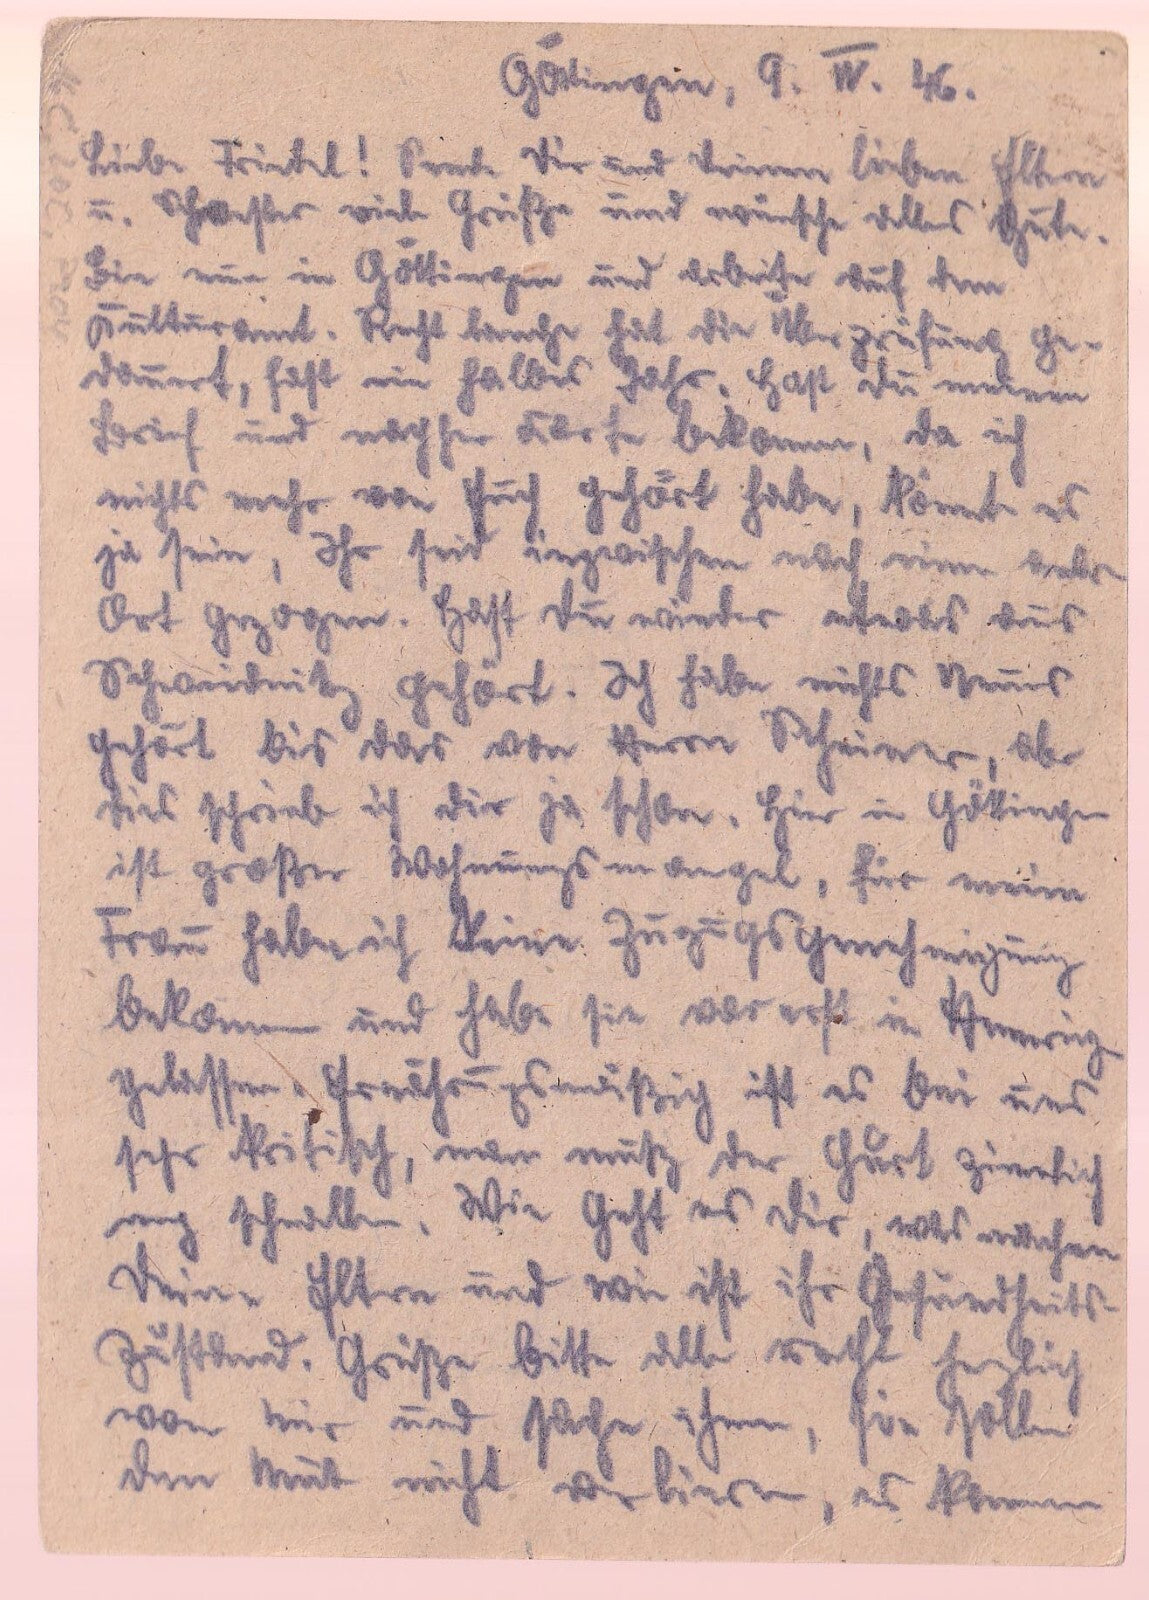 Göttingen, 9. IV. 46.
Liebe Friedel! Sende Dir und Deinen lieben Eltern
u. Schwester viele Grüße und wünsche alles Gute.
Bin nun in Göttingen und arbeite auf dem
Kulturamt. Recht lange hat die Überprüfung ge-
dauert, fast ein halbes Jahr. Hast Du meinen
Brief und nachher Karte bekommen, da ich
nichts mehr von Euch gehört habe, könnte es
ja sein, Ihr seid inzwischen nach einem andern
Ort gezogen. Hast Du wieder etwas aus
Schweidnitz gehört. Ich habe nichts Neues
gehört bis das von Herrn, aber
dies schrieb ich Dir ja schon. Hier in Göttingen
ist großer Wohnungsmangel, für meine
Frau habe ich keine Zuzugsgenehmigung
bekommen und habe sie vorerst in
gelassen. Ernährungsmäßig ist es bei uns
sehr kritisch, man muß der Gurt ziemlich
eng schnallen. Wie geht es Dir, was machen
Deine Eltern und wie ist ihr Gesundheits-
zustand. Grüße bitte alle recht herzlich
von mir und sage ihnen, sie sollen
den Mut nicht verlieren, es kommen